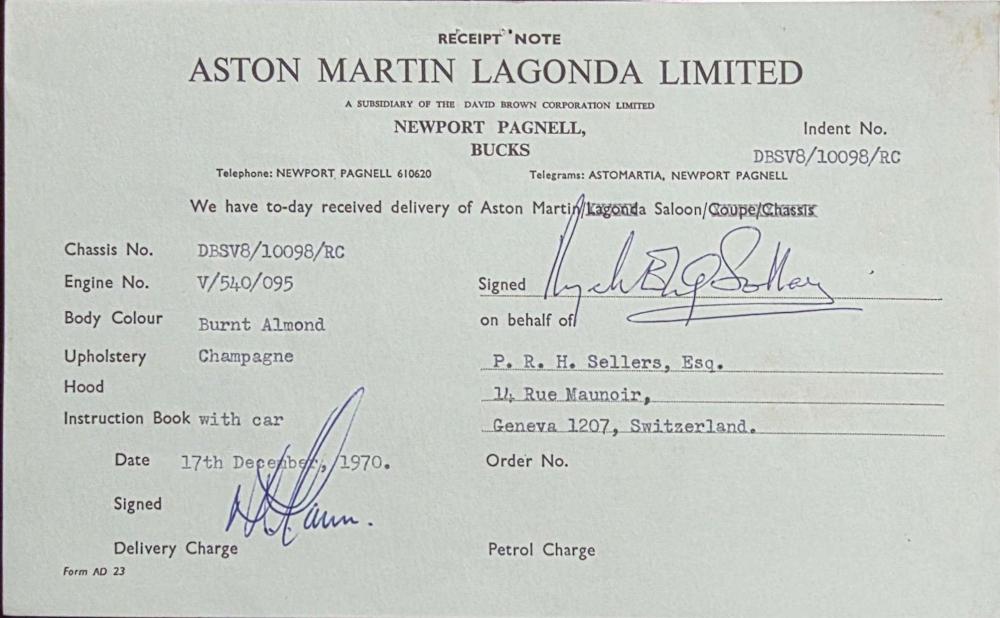 RECEIPT NOTE
ASTON MARTIN LAGONDA LIMITED
A SUBSIDIARY OF THE DAVID BROWN CORPORATION LIMITED
NEWPORT PAGNELL,
BUCKS
Indent No.
DBSV8/10098/RC
Telephone: NEWPORT PAGNELL 610620 Telegrams: ASTOMARTIA, NEWPORT PAGNELL
We have to-day received delivery of Aston Martin/Lagonda Saloon/Coupe/Chassis
Chassis No. DBSV8/10098/RC
Engine No. V/540/095
Body Colour Burnt Almond
Upholstery Champagne
Hood
Instruction Book with car
Date 17th December, 1970.
Signed
Delivery Charge
Form AD 23
Signed
on behalf of
P. R. H. Sellers, Esq.
14 Rue Maunoir,
Geneva 1207, Switzerland.
Order No.
Petrol Charge